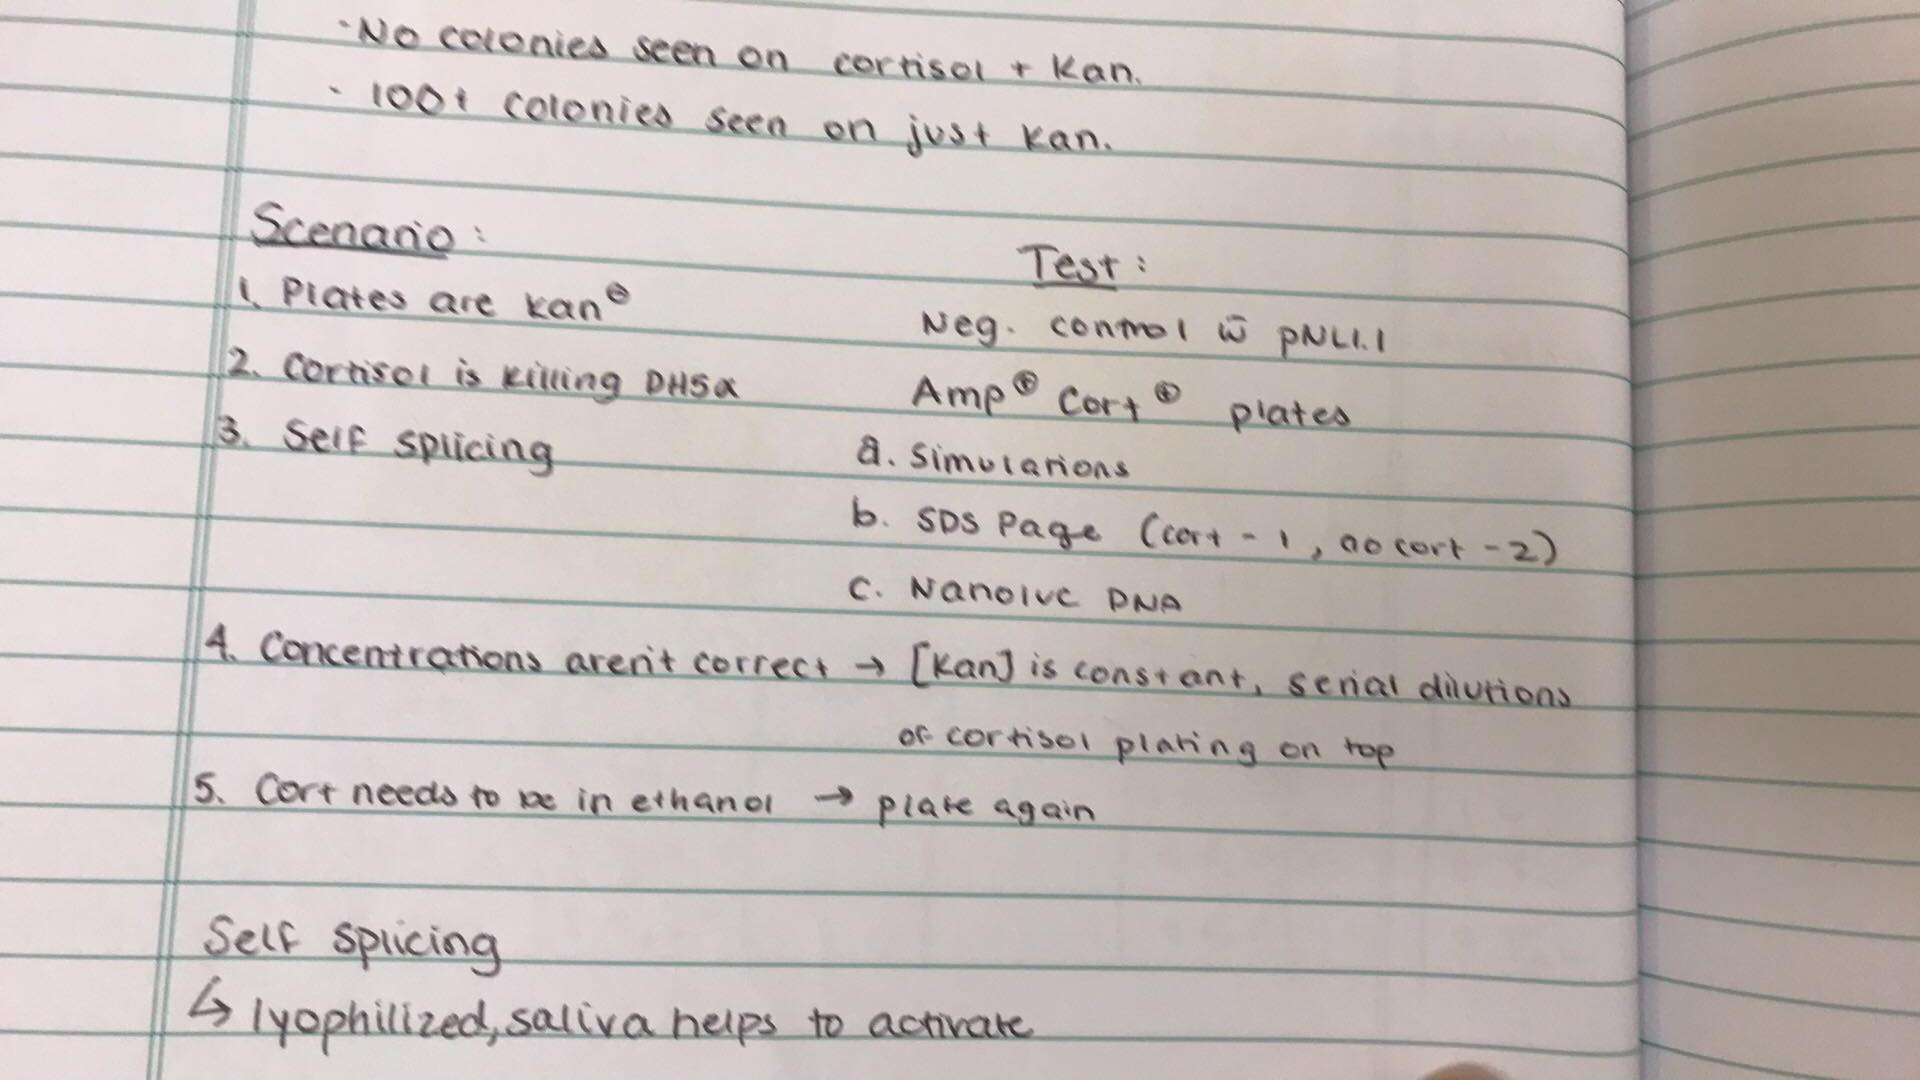 · No colonies seen on cortisol + Kan.
· 100+ colonies seen on just kan.
Scenario :
Test :
1. Plates are kan ⊖
Neg. control w̄ pNL1.1
2. Cortisol is killing DH5α
Amp ⊕ Cort ⊕ plates
3. Self splicing
a. Simulations
b. SDS Page (cort - 1, no cort - 2)
c. Nanoluc DNA
4. Concentrations aren't correct → [Kan] is constant, serial dilutions
of cortisol plating on top
5. Cort needs to be in ethanol → plate again
Self splicing
↳ lyophilized, saliva helps to activate